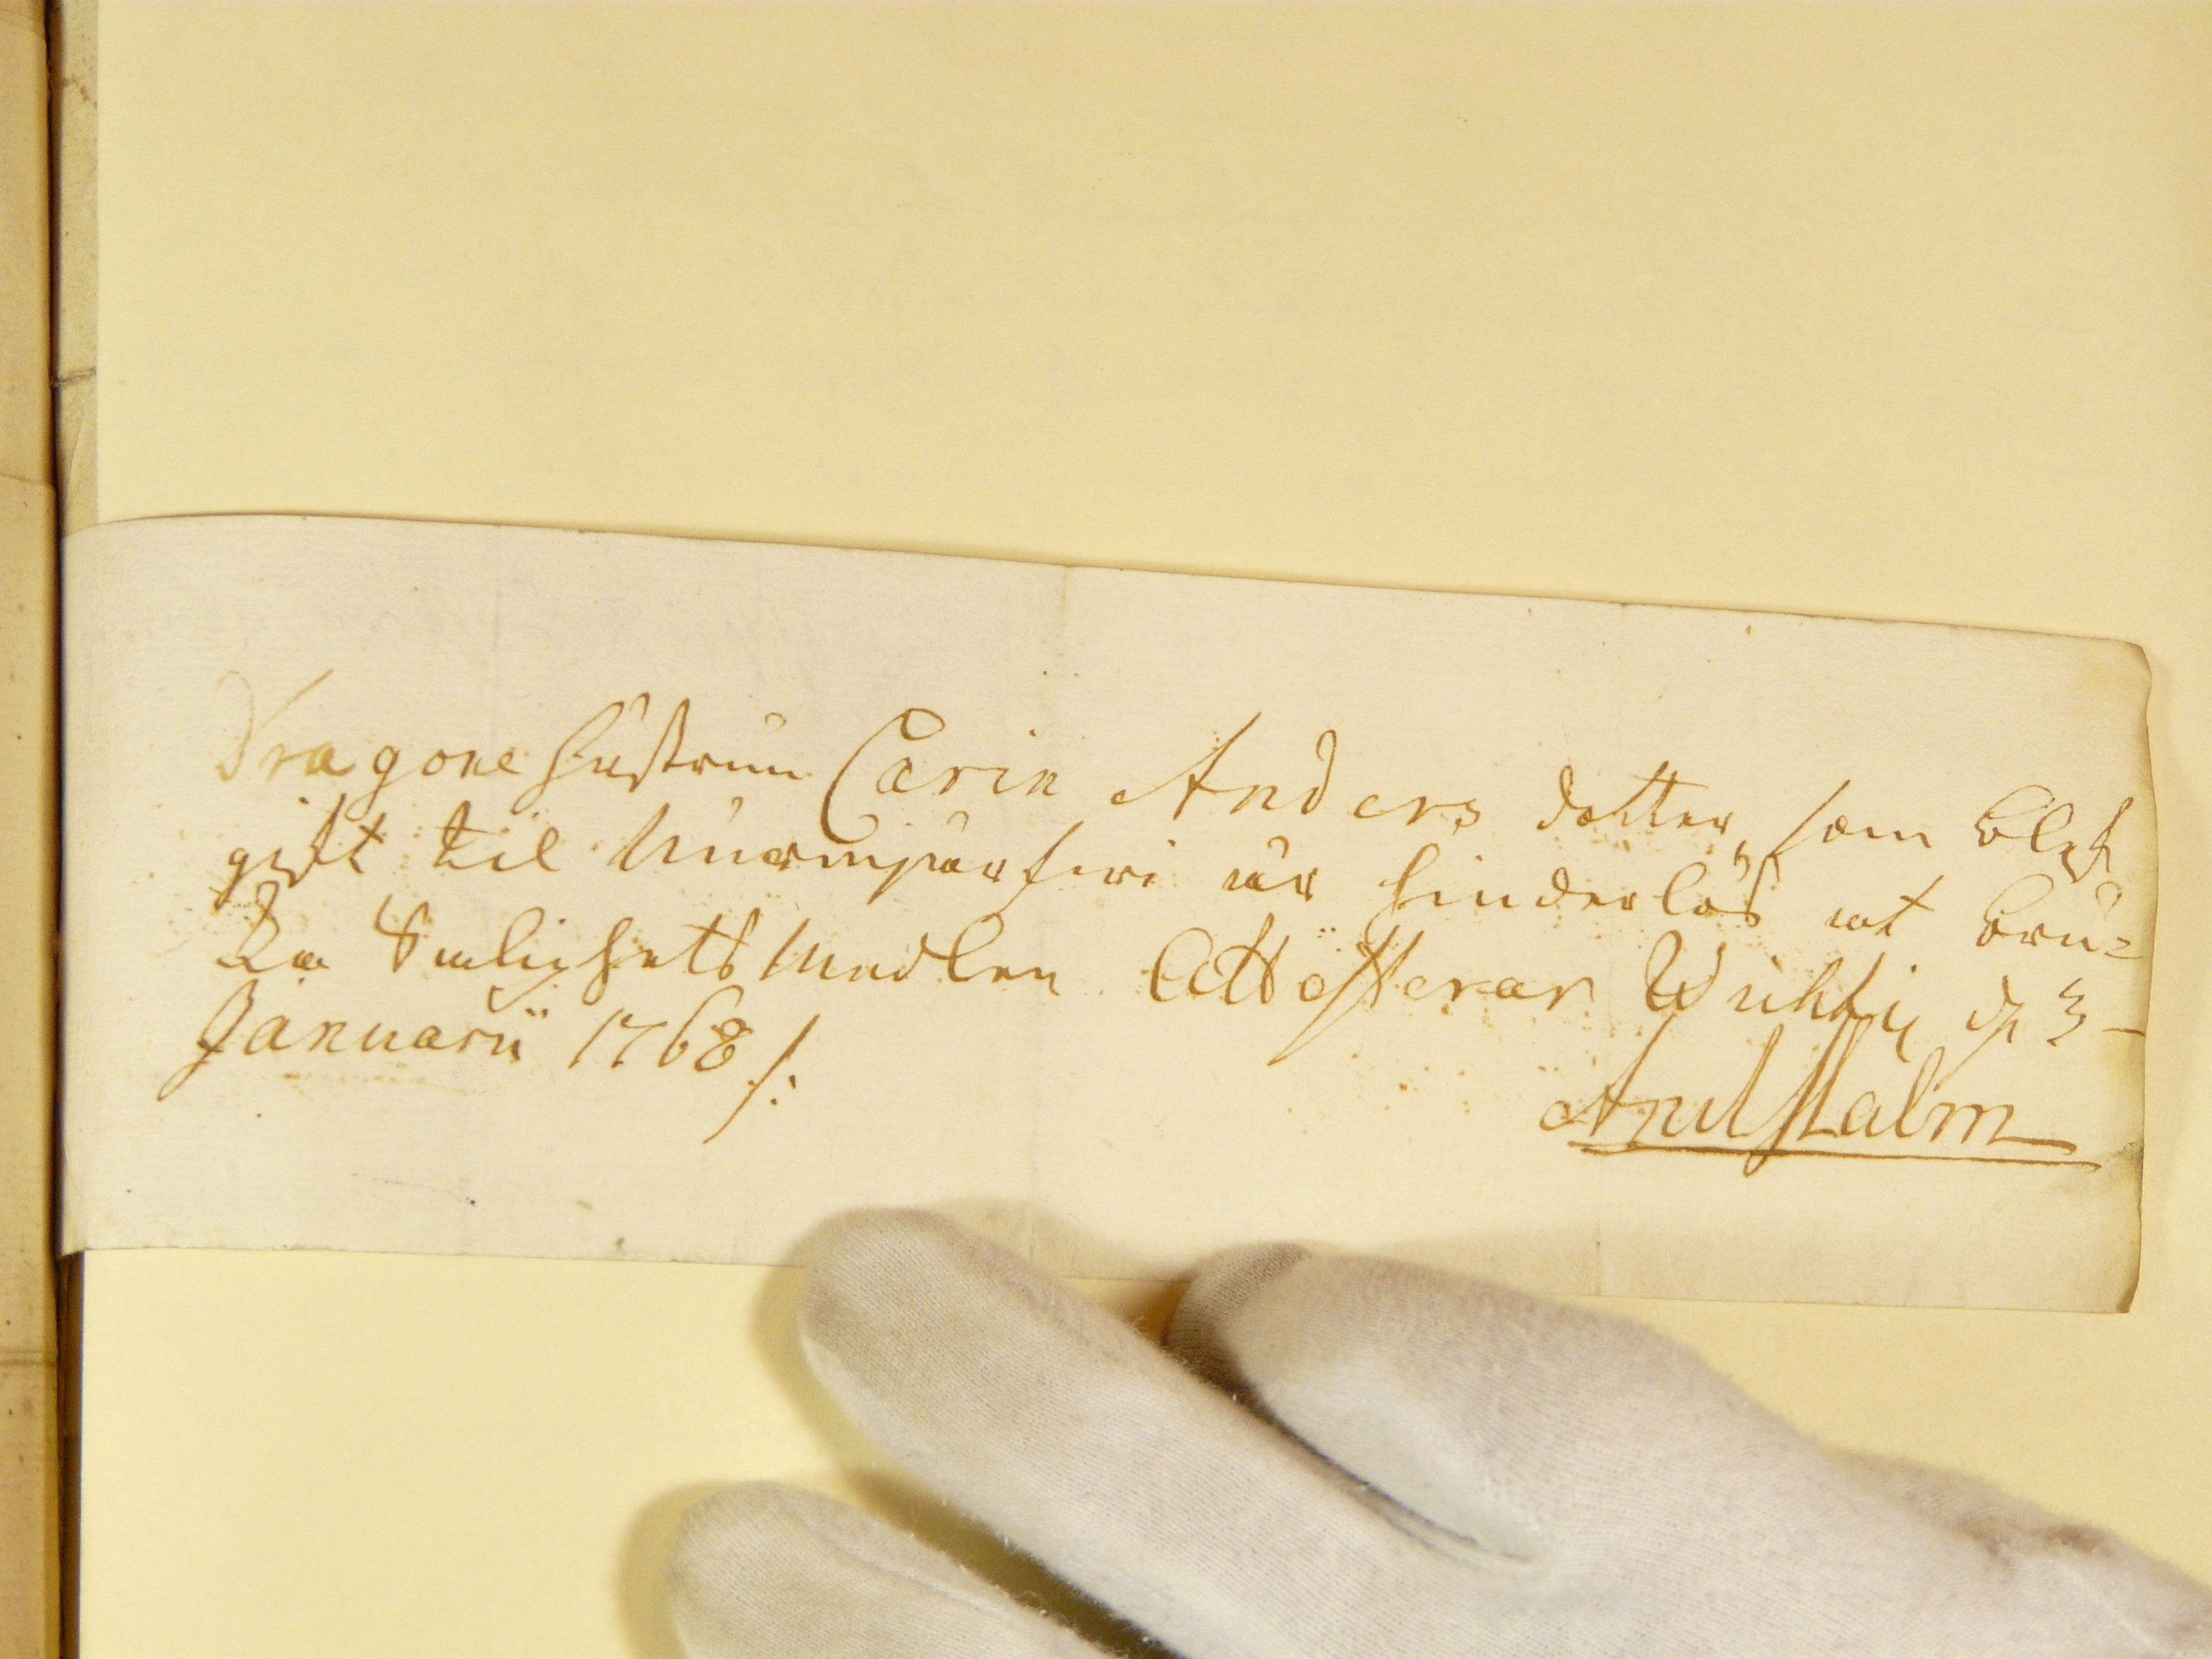 Dragone hustrun Carin Anders dotter, som blef
gift til är hinderlös at bru=
ka Salighets Medlen. Attesterar Wichtig d 3
Januarii 1768 /:
And Malm